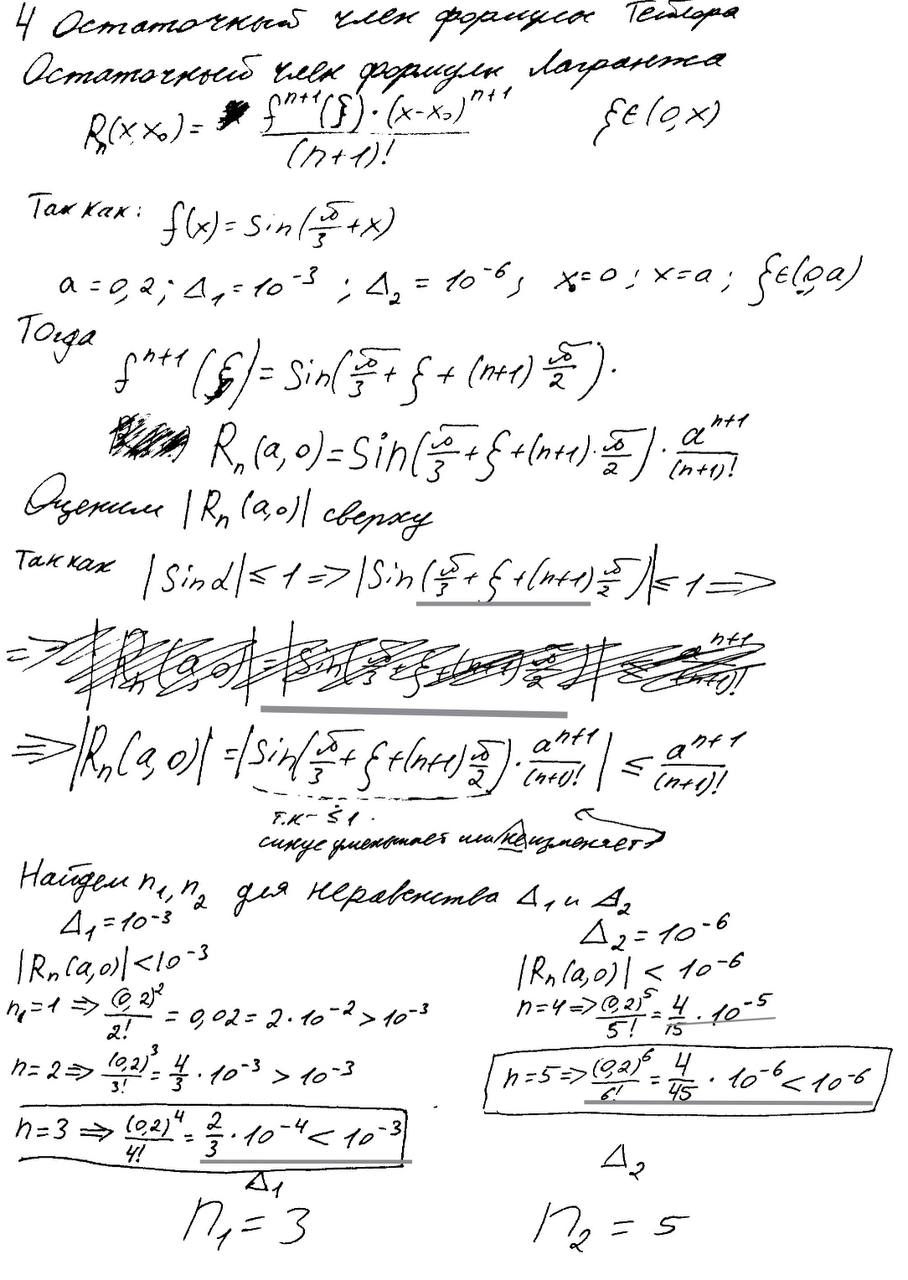 4 Остаточный член формулы Тейлора
Остаточный член формулы Лагранжа
Rₙ(x,x₀) = fⁿ⁺¹(ξ)·(x-x₀)ⁿ⁺¹ / (n+1)!  ξ∈(0,x)
Так как: f(x) = Sin(π/3 + x)
a = 0,2; Δ₁ = 10⁻³; Δ₂ = 10⁻⁶; x₀=0; x=a; ξ∈(0,a)
Тогда
fⁿ⁺¹(ξ) = Sin(π/3 + ξ + (n+1) π/2).
Rₙ(a,0) = Sin(π/3 + ξ + (n+1)·π/2) · aⁿ⁺¹/(n+1)!
Оценим |Rₙ(a,0)| сверху
Так как |Sin α| ≤ 1 => |Sin(π/3 + ξ + (n+1) π/2)| ≤ 1 =>
=> |Rₙ(a,0)| = |Sin(π/3 + ξ + (n+1) π/2) · aⁿ⁺¹/(n+1)!| ≤ aⁿ⁺¹/(n+1)!
т.к ≤ 1.
синус уменьшает или не изменяет
Найдем n₁, n₂ для неравенства Δ₁ и Δ₂
Δ₁ = 10⁻³
|Rₙ(a,0)| < 10⁻³
n₁=1 => (0,2)²/2! = 0,02 = 2·10⁻² > 10⁻³
n=2 => (0,2)³/3! = 4/3 · 10⁻³ > 10⁻³
n=3 => (0,2)⁴/4! = 2/3 · 10⁻⁴ < 10⁻³
Δ₁
n₁ = 3
Δ₂ = 10⁻⁶
|Rₙ(a,0)| < 10⁻⁶
n=4 => (0,2)⁵/5! = 4/15 · 10⁻⁵
n=5 => (0,2)⁶/6! = 4/45 · 10⁻⁶ < 10⁻⁶
Δ₂
n₂ = 5